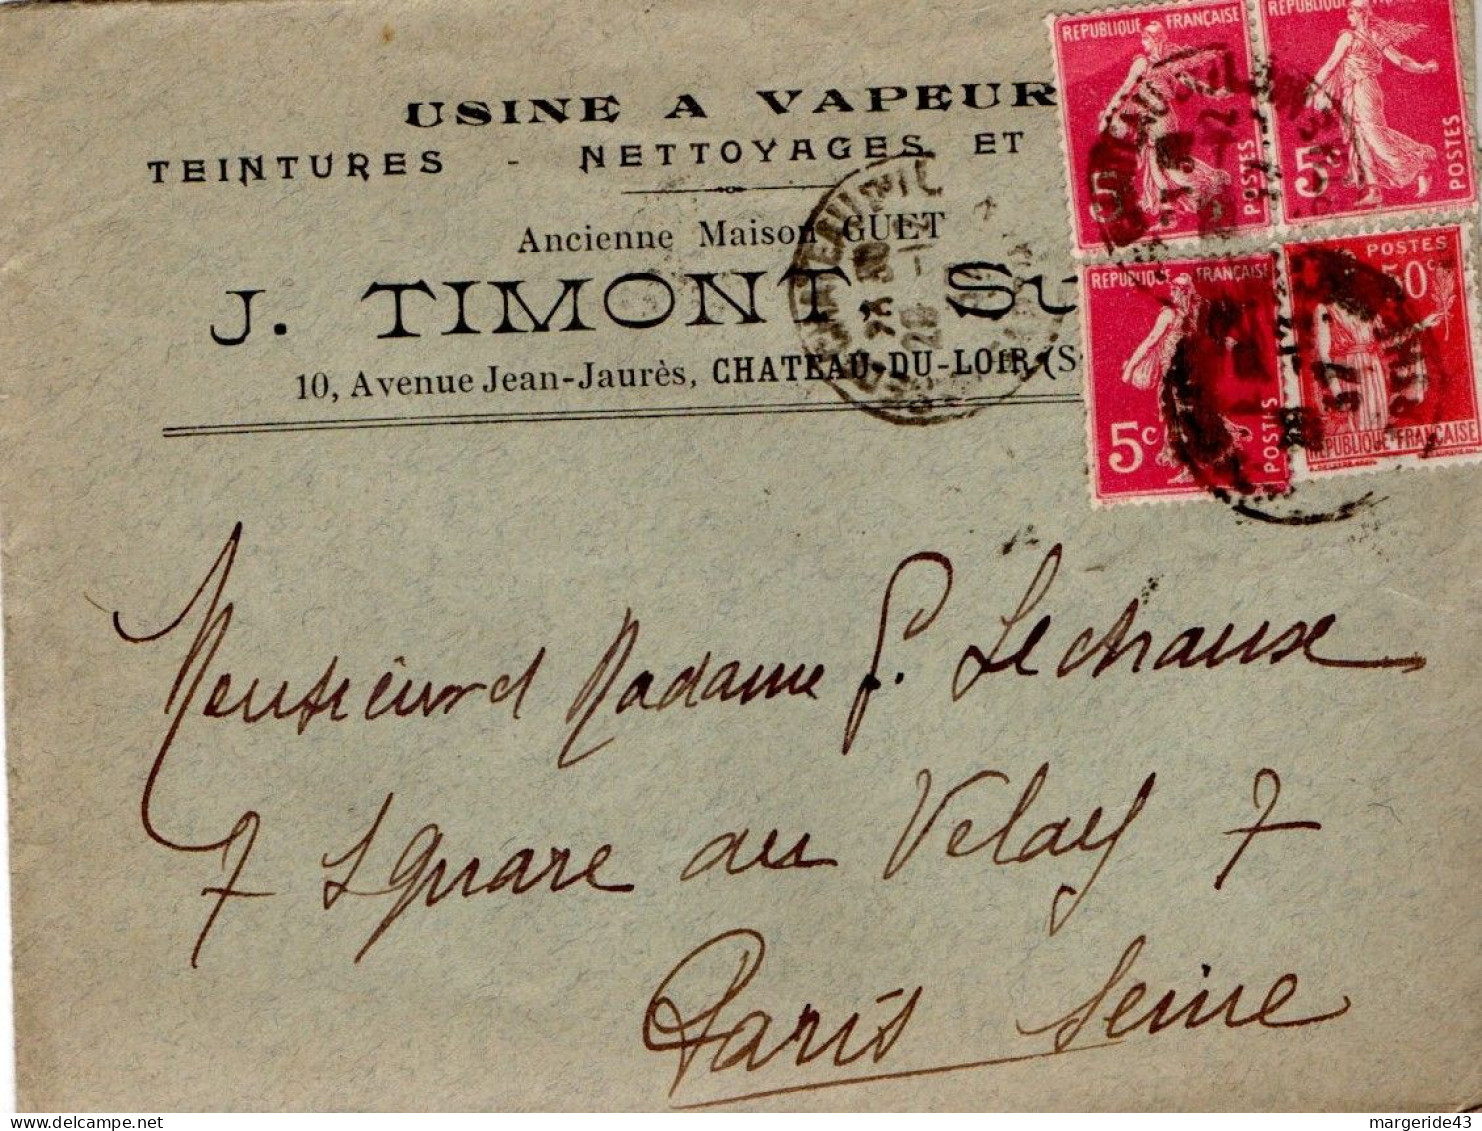 USINE A VAPEUR
TEINTURES - NETTOYAGES ET
Ancienne Maison GUET
J. TIMONT, Su
10, Avenue Jean-Jaurès, CHATEAU-DU-LOIR (S
REPUBLIQUE FRANÇAISE
5
POSTES
REPUBLIQUE FRANÇAISE
5c
POSTES
REPUBLIQUE FRANÇAISE
5c
POSTES
POSTES
50c
REPUBLIQUE-FRANÇAISE
37
Monsieur d Madame P. Lechause
7 Square au Velay 7
Paris Seine
margeride43